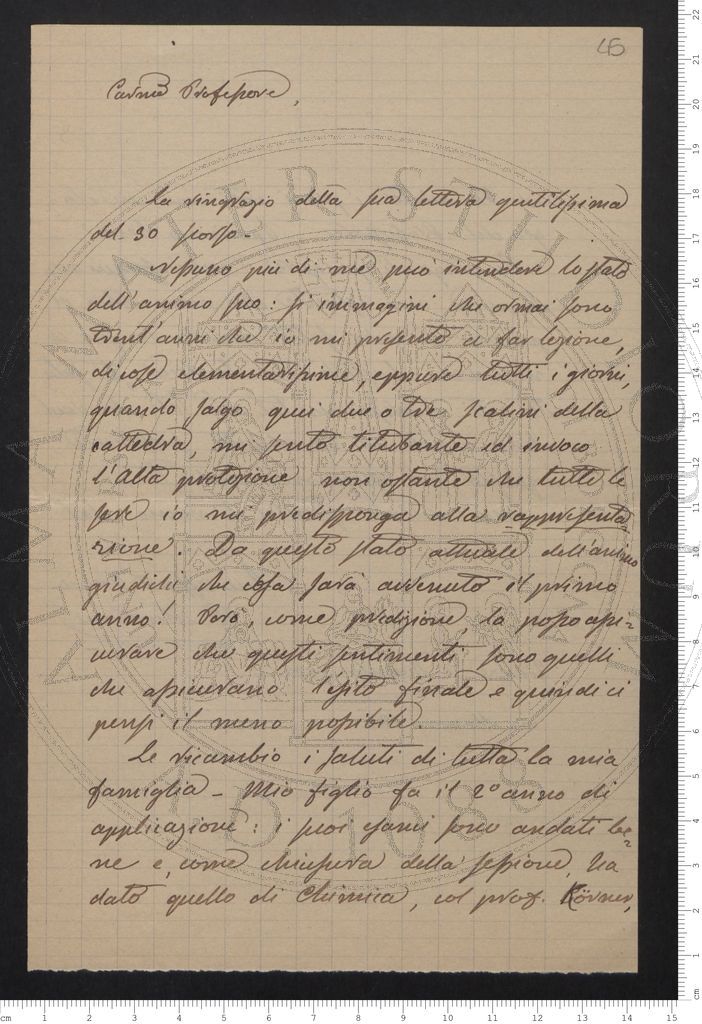 45
Carmo Professore,
La ringrazio della sua lettera gentilissima
del 30 scorso.
Nessuno più di me può intendere lo stato
dell'animo suo: si immagini che ormai sono
trent'anni che io mi presento a far lezione,
di cose elementarissime, eppure tutti i giorni,
quando salgo quei due o tre scalini della
cattedra, mi sento titubante ed invoco
l'Alta protezione non ostante che tutte le
sere io mi predisponga alla rappresenta-
zione. Da questo stato attuale dell'animo
giudichi che cosa sarà avvenuto il primo
anno! Però, come predizione, la posso assi-
curare che questi sentimenti sono quelli
che assicurano l'esito finale e quindi ci
pensi il meno possibile.
Le ricambio i saluti di tutta la mia
famiglia - Mio figlio fa il 2º anno di
applicazione: i suoi esami sono andati be-
ne e, come chiusura della sessione, ha
dato quello di Chimica, col prof. Körner,
ALMA MATER STUDIORUM
A.D. 1088